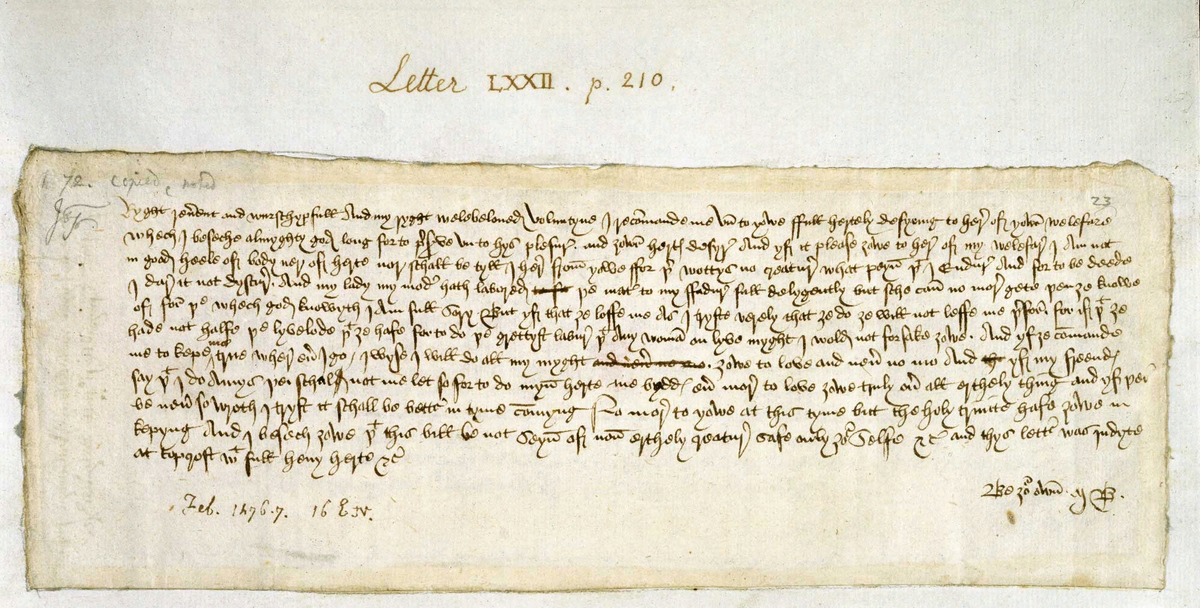 Letter LXXII. p. 210.
72. copied noted
23
Ryght reu͛ent and wurschypfull And my ryght welebeloued Voluntyne I recōmande me vn to yowe ffull hertely desyring to her͛ of yowr͛ welefare
Whech I beseche almyghty god long for to p͛s͛ve vn to hys plesur͛ and ȝowr͛ hert͛ desyr͛ And yf it please ȝowe to her͛ of my welefar͛ I am not
in good heele of body ner of herte nor schall be tyll I her͛ from yowe ffor þ͛ wottys no creatur͛ what peyn þt I Endur͛ And for to be deede
I dar͛ it not dyscur͛ And my lady my mod͛ hath labored þe mat͛ to my ffadur͛ full delygently but sche can no mor͛ gete þen ȝe knowe
of for þe whech god knowyth I am full sory But yf that ȝe loffe me As I tryste verely that ȝe do ȝe will not leffe me þ͛for͛ for if þt ȝe
hade not halfe þe lyvelode þt ȝe hafe for to do þe grettyst labur͛ þt Any woman on lyve myght I wold not forsake ȝowe And yf ȝe cōmande
me to kepe me trwe wher eu͛ I go I wyse I will do all my myght ȝowe to love and neu͛ no mo And yf my freend͛
say þt I do Amys þei schal not me let so for to do myn͛ herte me bydd͛ eu͛ mor͛ to love ȝowe truly ou͛ all erthely thing and yf þei
be neu͛ so wroth I tryst it schall be bett͛ in tyme cōmyng No mor͛ to yowe at this tyme but the holy trinite hafe ȝowe in
kepyng And I besech ȝowe þt this bill be not seyn͛ of non͛ erthely creatur͛ safe only ȝor Selfe &c͛ and thys lett͛ was indyte
at topcroft wt full heuy herte &c͛
Be ȝor own͛ M B.
Feb. 1476.7. 16 E. IV.